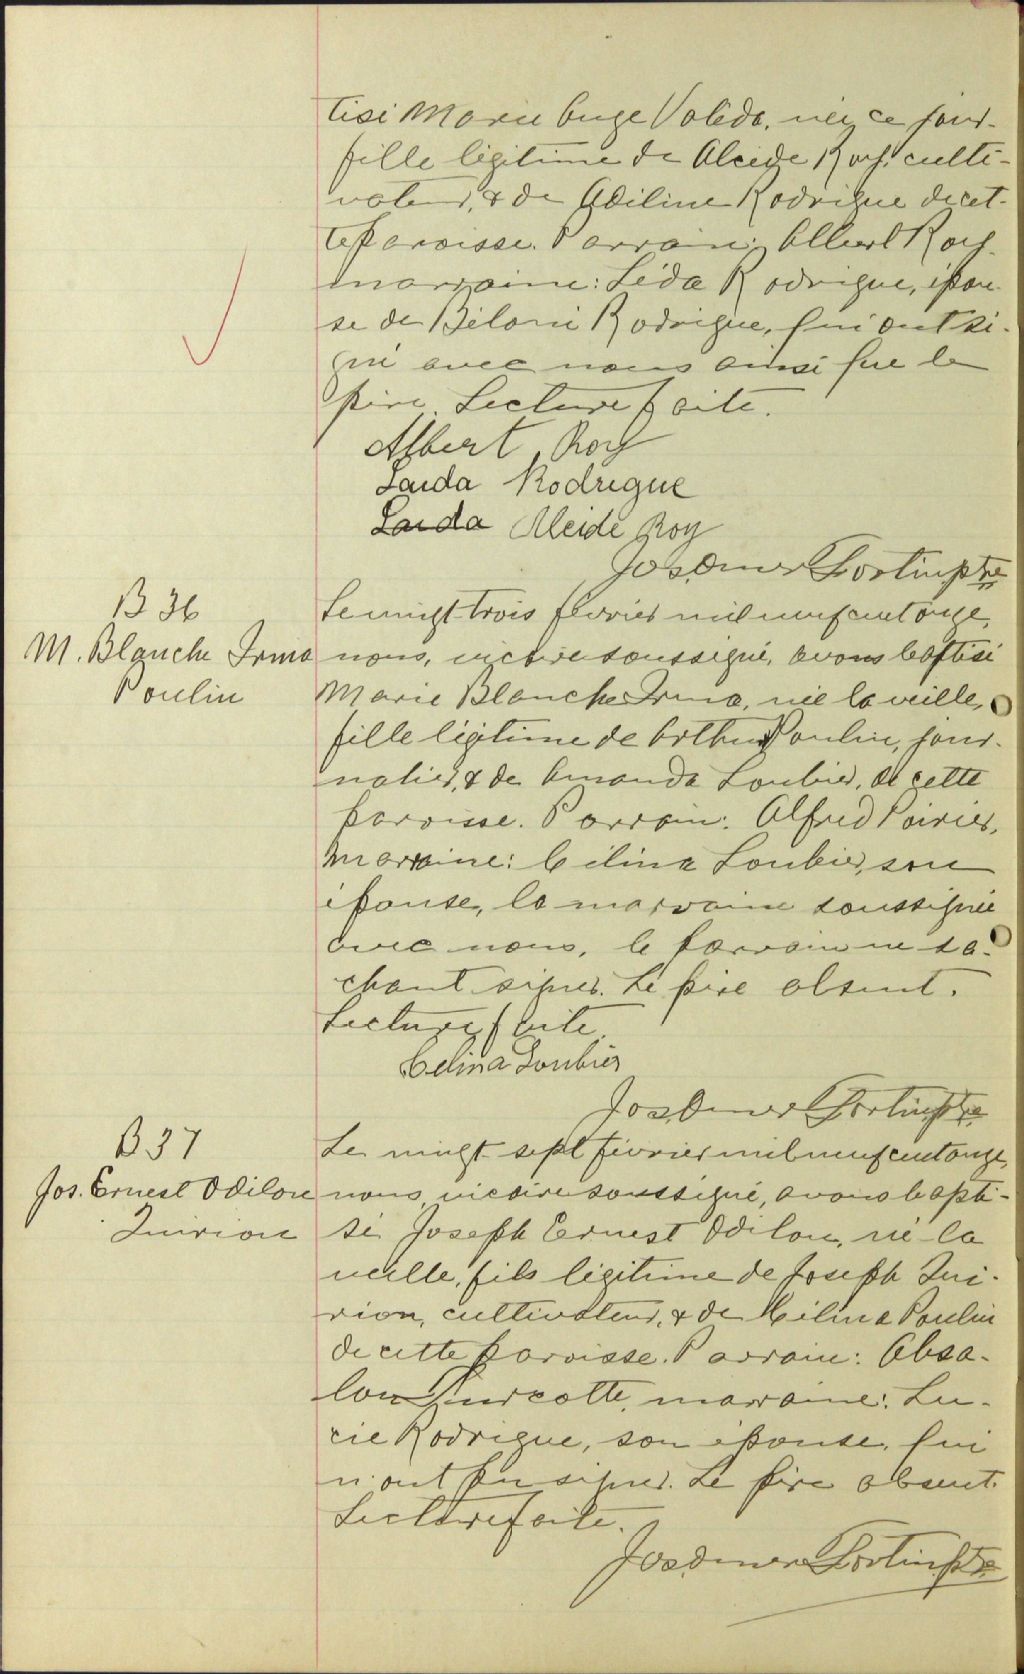 tisé Marie Ange Valéda, née ce jour,
fille légitime de Alcide Roy, culti-
vateur, & de Adéline Rodrigue de cet-
te paroisse. Parrain: Albert Roy
marraine: Léda Rodrigue, épou-
se de Béloni Rodrigue, qui ont si-
gné avec nous ainsi que le
père. Lecture faite.
Albert Roy
Laida Rodrigue
Laida Alcide Roy
Jos. Omer Fortin, ptre
B 36
M. Blanche Irma
Poulin
Le vingt trois février mil neuf cent onze,
nous, vicaire soussigné, avons baptisé
Marie Blanche Irma, née la veille,
fille légitime de Arthur Poulin, jour-
nalier, & de Amanda Loubier, de cette
paroisse. Parrain: Alfred Poirier,
Marraine: Célina Loubier, son
épouse, la marraine soussignée
avec nous, le parrain ne sa-
chant signer. Le père absent.
Lecture faite.
Celina Loubier
Jos. Omer Fortin, ptre
B 37
Jos. Ernest Odilon
Quirion
Le vingt sept février mil neuf cent onze,
nous, vicaire soussigné, avons bapti-
sé Joseph Ernest Odilon, né la
veille, fils légitime de Joseph Qui-
rion, cultivateur, & de Célina Poulin
de cette paroisse. Parrain: Absa-
lon Turcotte, marraine: Lu-
cie Rodrigue, son épouse, qui
n'ont pu signer. Le père absent.
Lecture faite.
Jos. Omer Fortin, ptre